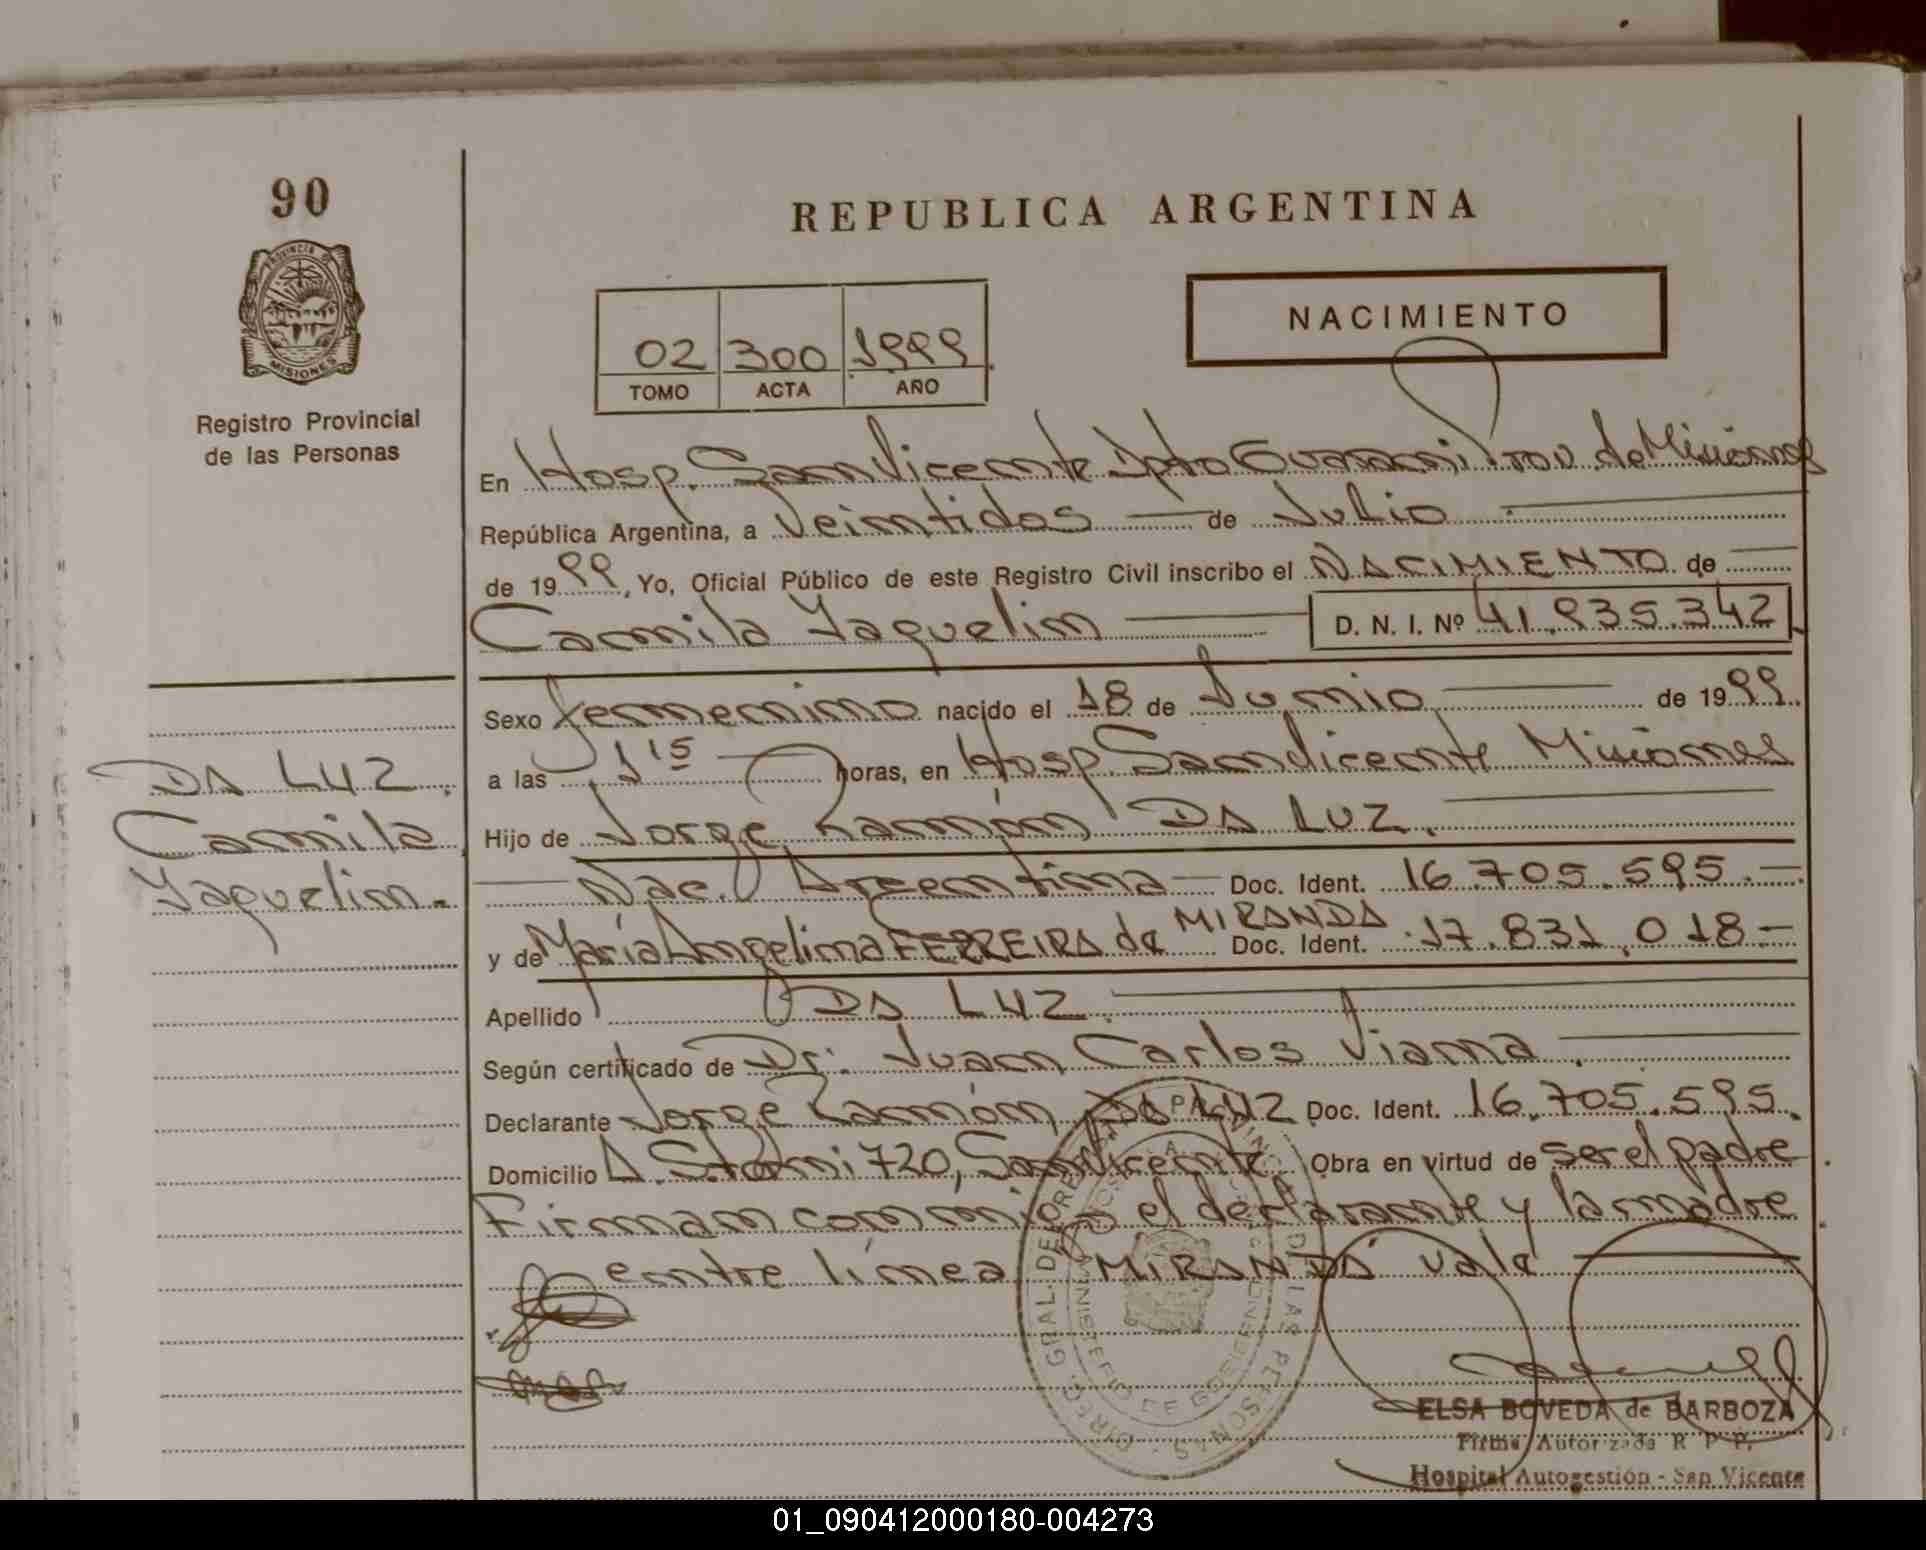 90
REPUBLICA ARGENTINA
PROVINCIA DE
MISIONES
Registro Provincial
de las Personas
02 300 1999
TOMO ACTA AÑO
NACIMIENTO
En Hosp. San Vicente Dpto Guarani Prov. de Misiones
República Argentina, a Veintidos de Julio
de 1999, Yo, Oficial Público de este Registro Civil inscribo el NACIMIENTO de
Camila Yaquelin D. N. I. Nº 41.935.342
Sexo femenino nacido el 18 de Junio de 1999.
a las 1 15 horas, en Hosp. San Vicente Misiones
DA LUZ.
Camila
Yaquelin.
Hijo de Jorge Ramón DA LUZ.
Nac. Argentina Doc. Ident. 16.705.595.
y de María Angelina FERREIRA de MIRANDA Doc. Ident. 17.831.018
Apellido DA LUZ.
Según certificado de Dr. Juan Carlos Viana.
Declarante Jorge Ramón Da LUZ Doc. Ident. 16.705.595.
Domicilio 720, San Vicente Obra en virtud de ser el padre
Firman conmigo el declarante y la madre
entre línea MIRANDA vale
ELSA BOVEDA de BARBOZA
Firma Autorizada R P P.
Hospital Autogestión - San Vicente
01_090412000180-004273